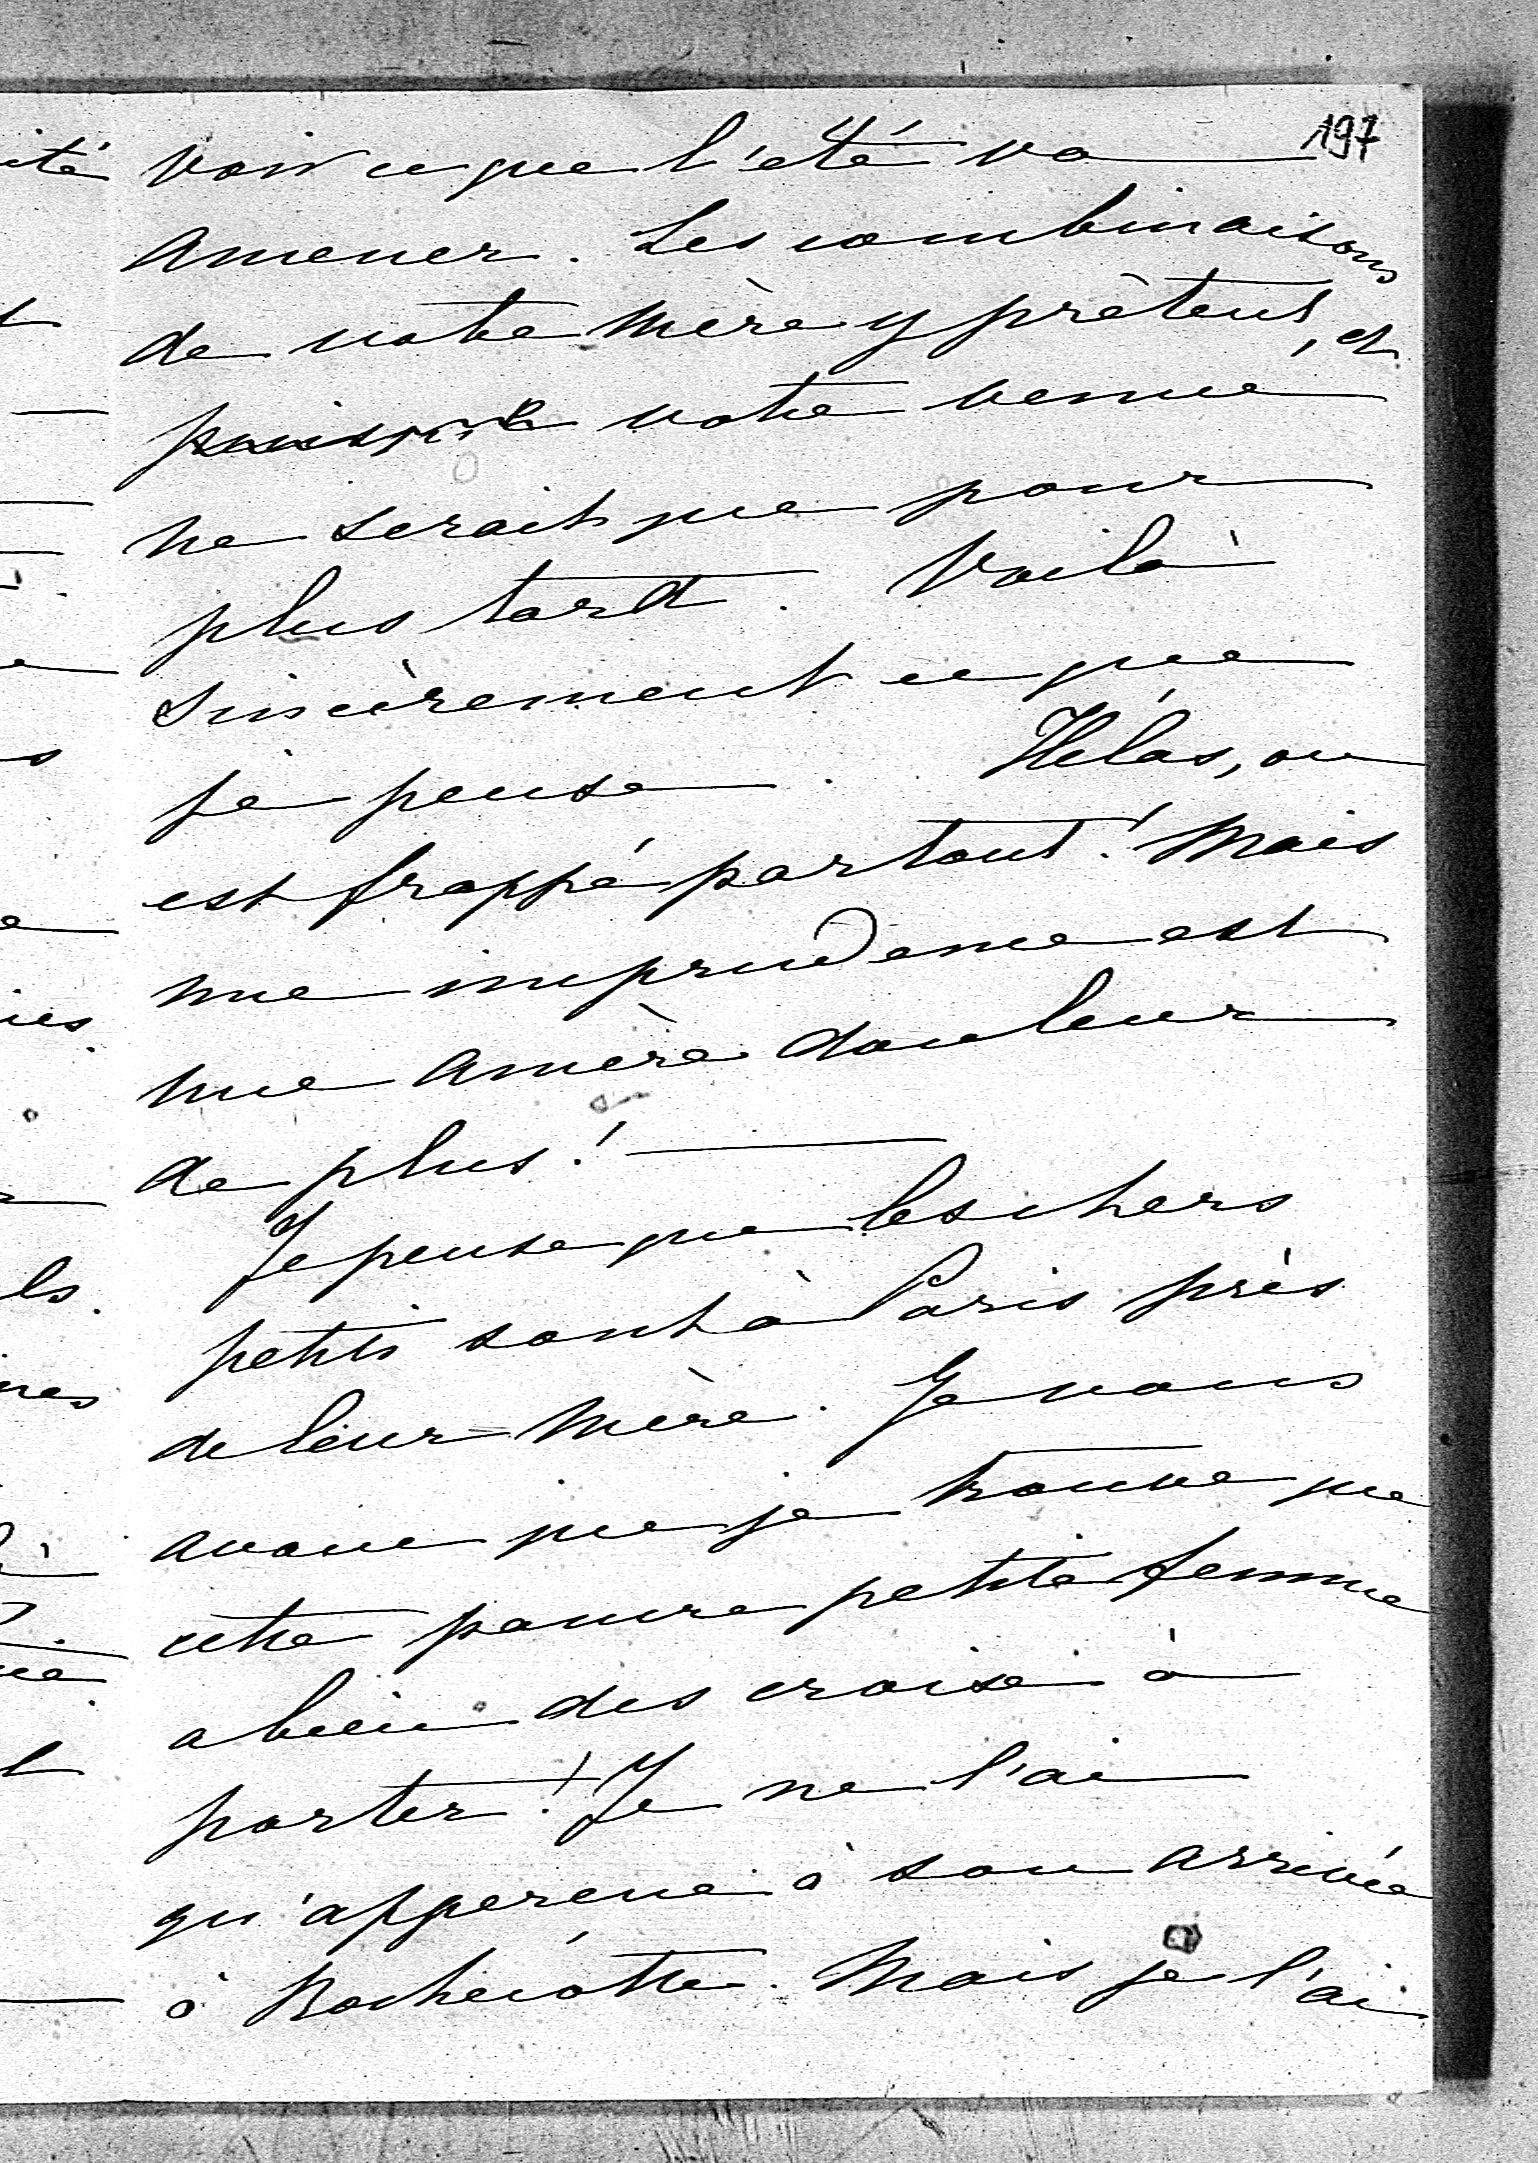 197
voir ce que l'été va
amener. Les combinaisons
de votre mère y prêtent, et
puisque votre venue
ne serait que pour
plus tard. Voilà
sincèrement ce que
je pense. Hélas, on
est frappé partout! Mais
une imprudence est
une amère douleur
de plus!
Je pense que les chers
petits sont à Paris près
de leur mère. Je vous
avoue que je trouve que
cette pauvre petite femme
a bien des croix à
porter! Je ne l'ai
qu'apperçue à son arrivée
à Rochecotte. Mais je l'ai